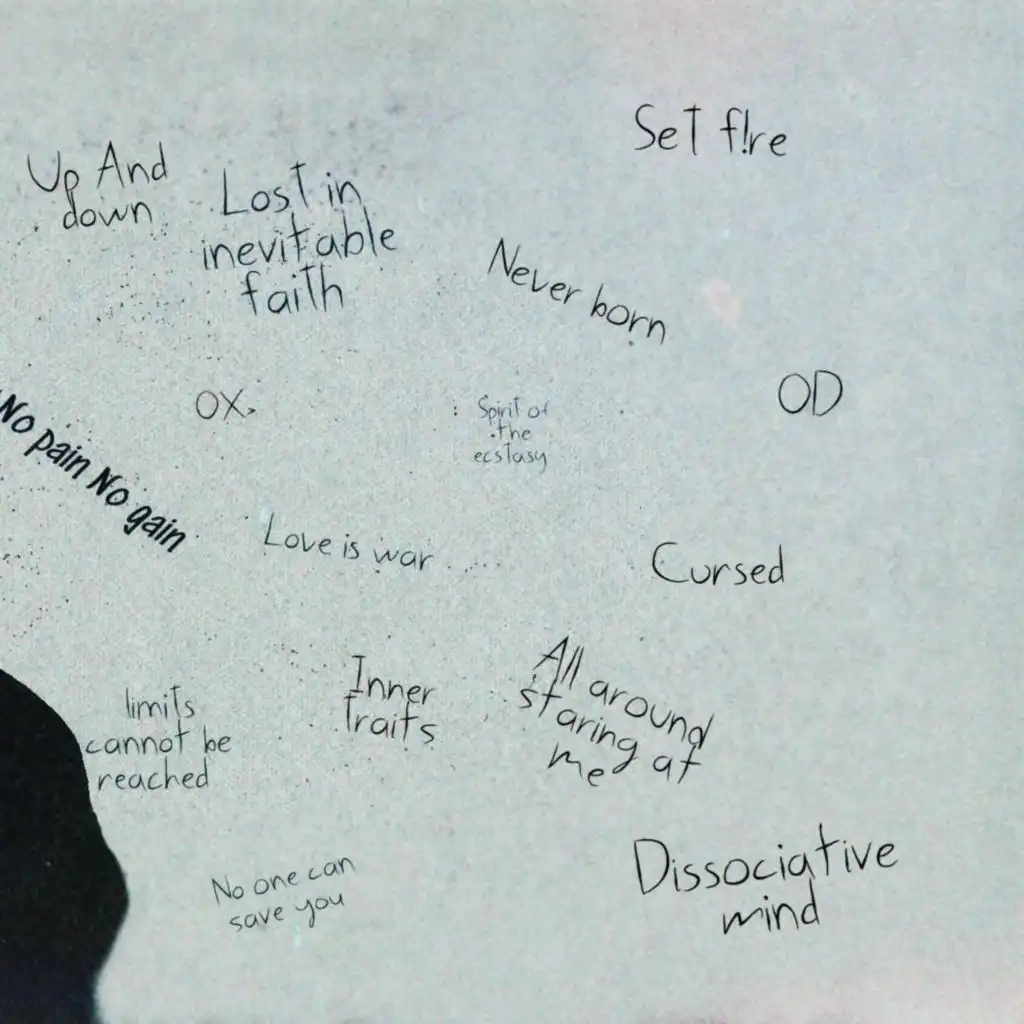 Set f!re
Up And
down
Lost in
inevitable
faith
Never born
OD
OX
Spirit of
the
ecstasy
No pain No gain
Love is war
Cursed
Inner
Traits
All around
staring at
me
limits
cannot be
reached
Dissociative
mind
No one can
save you